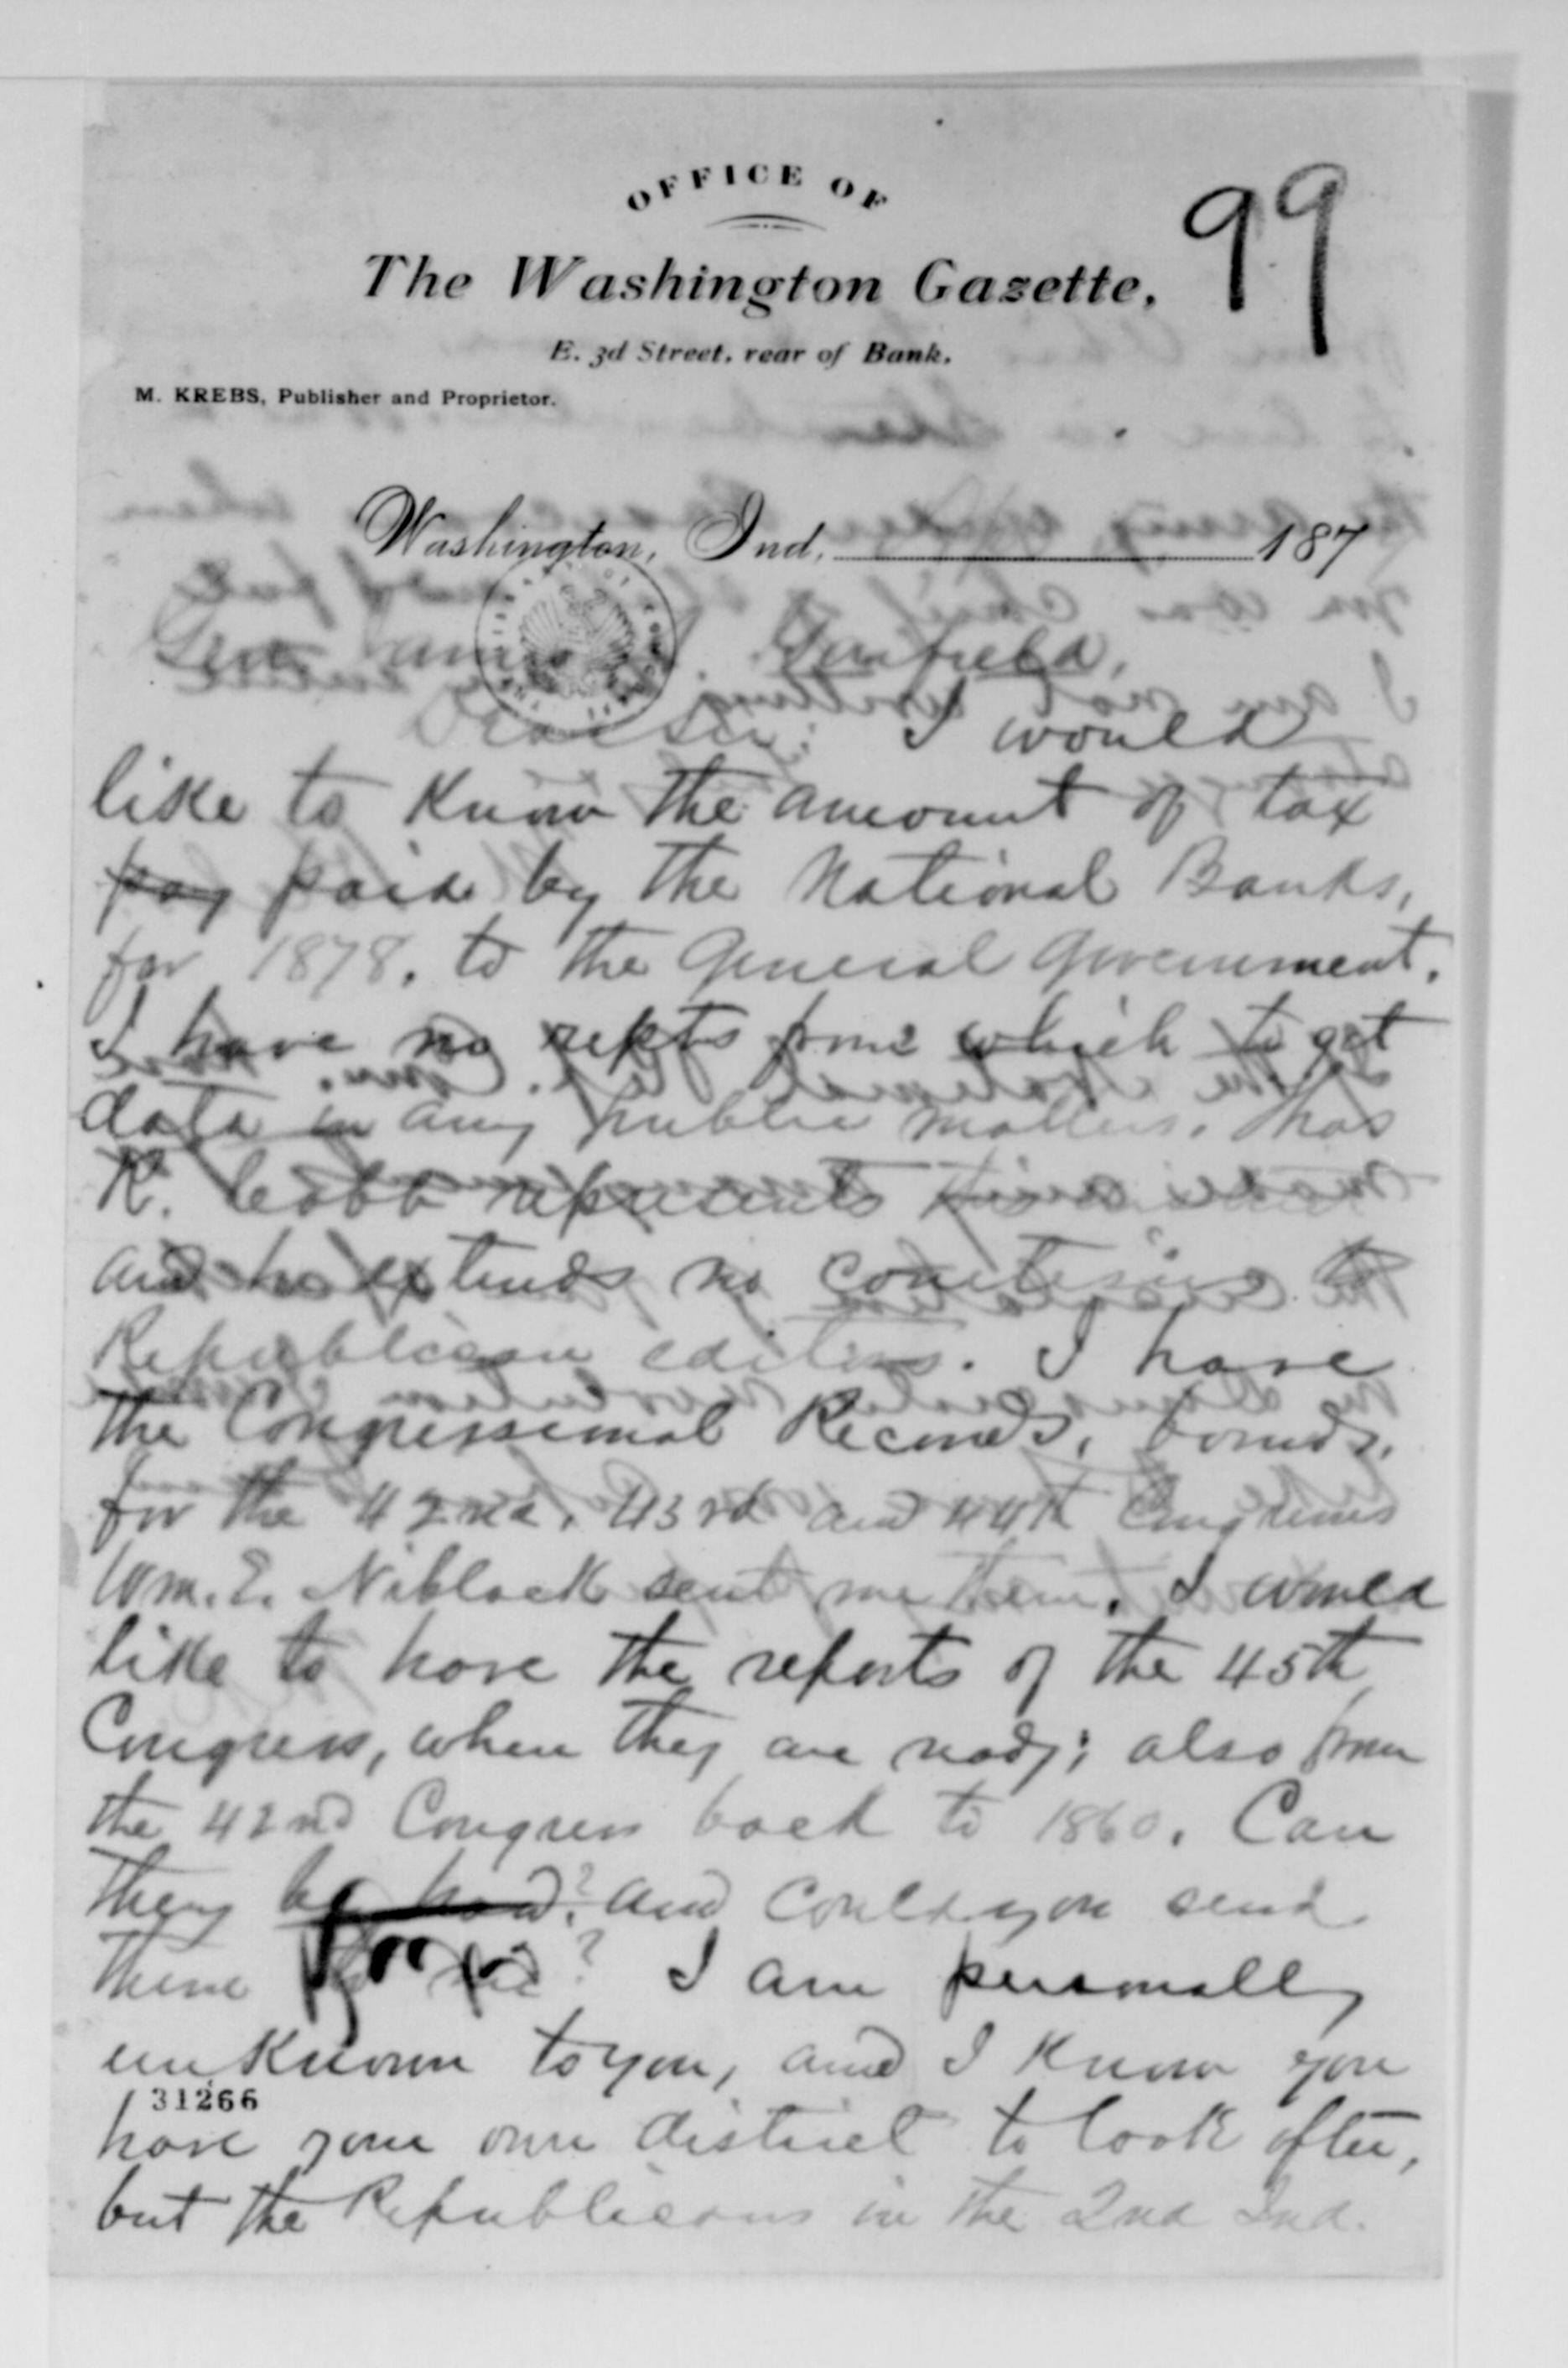 OFFICE OF
99
The Washington Gazette,
E. 3d Street, rear of Bank.
M. KREBS, Publisher and Proprietor.
Washington, Ind. 187
Gen. James Garfield,
Dear Sir: I would
like to know the amount of tax
pay paid by the National Banks,
for 1878, to the General Government.
I have no repts from which to get
data in any public matters. Thos
R. Cobb represents
and he extends no courtesies to
Republican editors. I have
the Congressional Records, bound,
for the 42nd, 43rd and 44th Congresses
Wm. E. Niblack sent me them. I would
like to have the reports of the 45th
Congress, when they are ready; also from
the 42nd Congress back to 1860. Can
they be had? and could you send
them ? I am personally
unknown to you, and I know you
31266
have your own district to look after,
but the Republicans in the 2nd Ind.